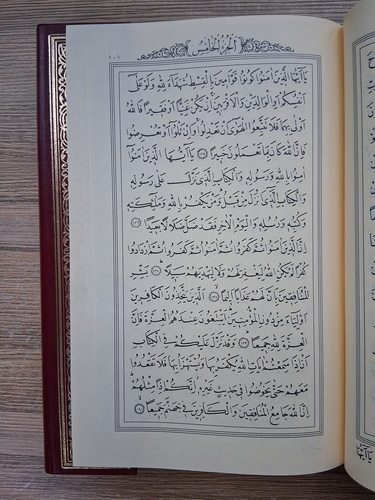 الجزء الخامس
١٠١
يَا أَيُّهَا الَّذِينَ آمَنُوا كُونُوا قَوَّامِينَ بِالْقِسْطِ شُهَدَاءَ لِلَّهِ وَلَوْ عَلَى
أَنْفُسِكُمْ أَوِ الْوَالِدَيْنِ وَالْأَقْرَبِينَ إِنْ يَكُنْ غَنِيًّا أَوْ فَقِيرًا فَاللَّهُ
أَوْلَى بِهِمَا فَلَا تَتَّبِعُوا الْهَوَى أَنْ تَعْدِلُوا وَإِنْ تَلْوُوا أَوْ تُعْرِضُوا
فَإِنَّ اللَّهَ كَانَ بِمَا تَعْمَلُونَ خَبِيرًا ﴿١٣٥﴾ يَا أَيُّهَا الَّذِينَ آمَنُوا
آمِنُوا بِاللَّهِ وَرَسُولِهِ وَالْكِتَابِ الَّذِي نَزَّلَ عَلَى رَسُولِهِ
وَالْكِتَابِ الَّذِي أَنْزَلَ مِنْ قَبْلُ وَمَنْ يَكْفُرْ بِاللَّهِ وَمَلَائِكَتِهِ
وَكُتُبِهِ وَرُسُلِهِ وَالْيَوْمِ الْآخِرِ فَقَدْ ضَلَّ ضَلَالًا بَعِيدًا ﴿١٣٦﴾
إِنَّ الَّذِينَ آمَنُوا ثُمَّ كَفَرُوا ثُمَّ آمَنُوا ثُمَّ كَفَرُوا ثُمَّ ازْدَادُوا
كُفْرًا لَمْ يَكُنِ اللَّهُ لِيَغْفِرَ لَهُمْ وَلَا لِيَهْدِيَهُمْ سَبِيلًا ﴿١٣٧﴾ بَشِّرِ
الْمُنَافِقِينَ بِأَنَّ لَهُمْ عَذَابًا أَلِيمًا ﴿١٣٨﴾ الَّذِينَ يَتَّخِذُونَ الْكَافِرِينَ
أَوْلِيَاءَ مِنْ دُونِ الْمُؤْمِنِينَ أَيَبْتَغُونَ عِنْدَهُمُ الْعِزَّةَ فَإِنَّ
الْعِزَّةَ لِلَّهِ جَمِيعًا ﴿١٣٩﴾ وَقَدْ نَزَّلَ عَلَيْكُمْ فِي الْكِتَابِ
أَنْ إِذَا سَمِعْتُمْ آيَاتِ اللَّهِ يُكْفَرُ بِهَا وَيُسْتَهْزَأُ بِهَا فَلَا تَقْعُدُوا
مَعَهُمْ حَتَّى يَخُوضُوا فِي حَدِيثٍ غَيْرِهِ إِنَّكُمْ إِذًا مِثْلُهُمْ
إِنَّ اللَّهَ جَامِعُ الْمُنَافِقِينَ وَالْكَافِرِينَ فِي جَهَنَّمَ جَمِيعًا ﴿١٤٠﴾